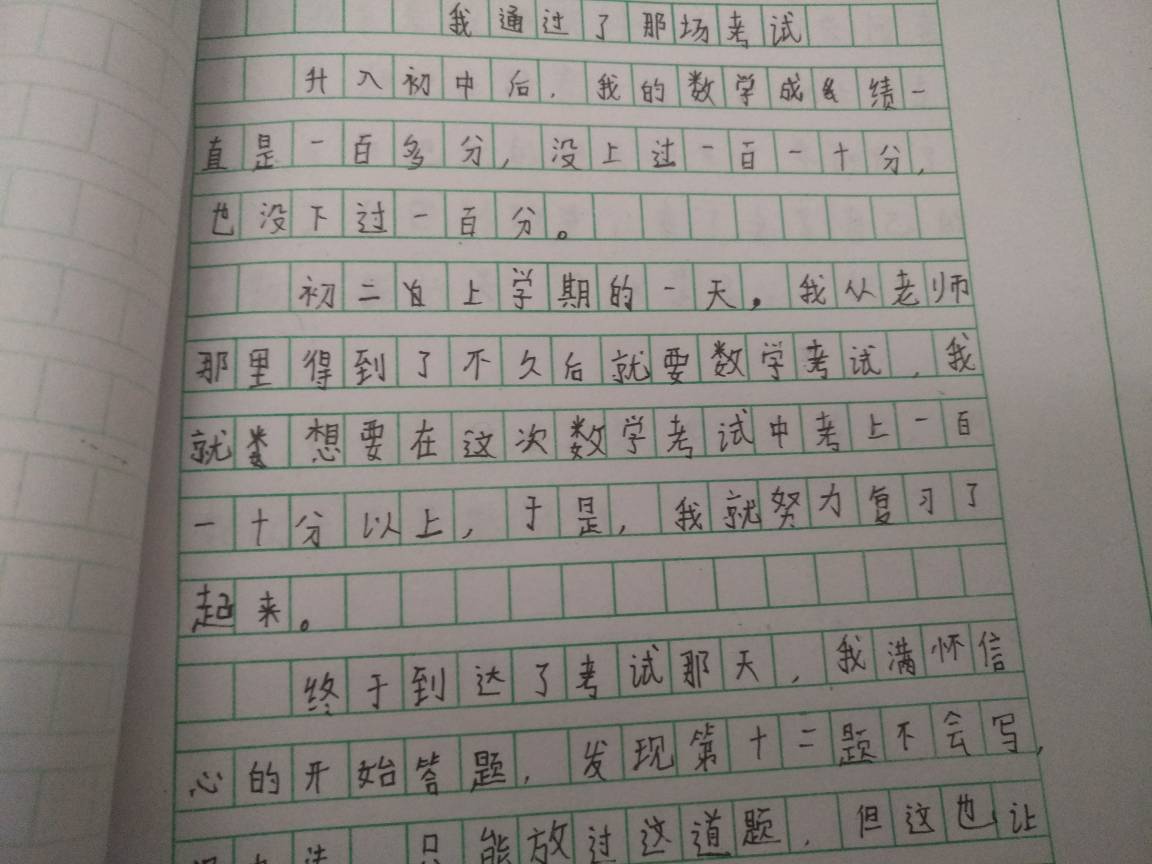 我通过了那场考试
升入初中后，我的数学成绩一
直是一百多分，没上过一百一十分，
也没下过一百分。
初二上学期的一天，我从老师
那里得到了不久后就要数学考试，我
就想要在这次数学考试中考上一百
一十分以上，于是，我就努力复习了
起来。
终于到达了考试那天，我满怀信
心的开始答题，发现第十二题不会写，
只能放过这道题，但这也让